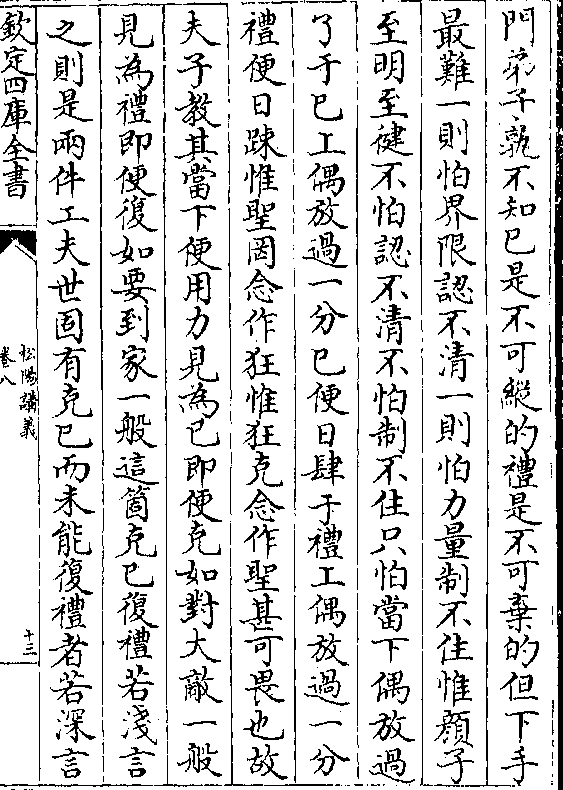 門弟子孰不知己是不可縱的禮是不可棄的但下手
最難一則怕界限認不清一則怕力量制不住惟顔子
至明至健不怕認不清不怕制不住只怕當下偶放過
了于己工偶放過一分己便日肆于禮工偶放過一分
禮便日踈惟聖罔念作狂惟狂克念作聖甚可畏也故
夫子教其當下便用力見為己即便克如對大敵一般
見為禮即便復如要到家一般這箇克己復禮若淺言
之則是兩件工夫世固有克己而未能復禮者若深言
欽定四庫全書
松陽講義
卷八
十三